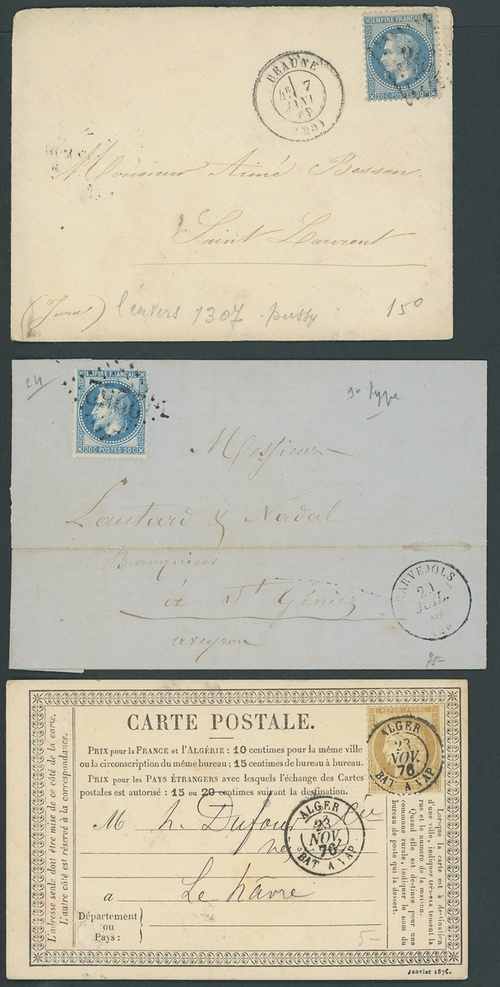 EMPIRE FRANÇAIS
20 C POSTES 20 C
BEAUNE
7
JUIN
(20)
Monsieur Aimé Besson
Saint Laurent
(Jura) l'envers 1307 pussy 150
24
EMPIRE FRANÇAIS
20 C POSTES 20 C
1er type
Messieurs
Lautard & Nadal
Banquiers
à St Géniez
aveyron
MARVEJOLS
JUIL.
75-
CARTE POSTALE.
PRIX pour la FRANCE et l'ALGÉRIE : 10 centimes pour la même ville
ou la circonscription du même bureau ; 15 centimes de bureau à bureau.
PRIX pour les PAYS ÉTRANGERS avec lesquels l'échange des Cartes
postales est autorisé : 15 ou 20 centimes suivant la destination.
ALGER
23
NOV.
76
BAT A VAP
M h. Dufour &
ALGER
23
NOV.
76
BAT A VAP
a Le havre
Département
ou
Pays :
5-
L'adresse seule doit être mise de ce côté de la carte.
L'autre côté est réservé à la correspondance.
Lorsque la carte est à destination
d'une ville, indiquer très-exactement la
rue et le numéro de la maison.
Quand elle est destinée pour une
commune rurale, indiquer le nom du
bureau de poste qui la dessert.
Janvier 1876.